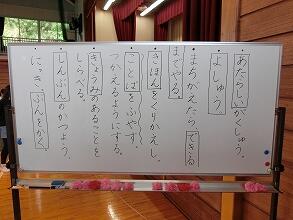 ・あたらしいがくしゅう。
・よしゅう。
・まちがえたら、できる
までやる。
・きほんをくりかえし。
・ことばをふやす。
つかえるようにする。
・きょうみのあることを
しらべる。
・しんぶんのかつよう。
・にっき、ぶんをかく。